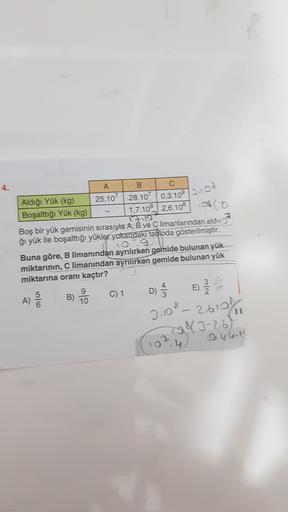 4.
A B C
Aldığı Yük (kg) 25.10⁷ 28.10⁷ 0,3.10⁹ 3.10⁸
Boşalttığı Yük (kg) – 1,7.10⁸ 2,6.10⁸
17.10⁷
Boş bir yük gemisinin sırasıyla A, B ve C limanlarından aldı-
ğı yük ile boşalttığı yükler yukarıdaki tabloda gösterilmiştir.
Buna göre, B limanından ayrılırken gemide bulunan yük
miktarının, C limanından ayrılırken gemide bulunan yük
miktarına oranı kaçtır?
A) 5/6 B) 9/10 C) 1 D) 4/3 E) 3/2
3.10⁸ – 2.6.10⁸
10⁸(3-2,6)
10⁷.4